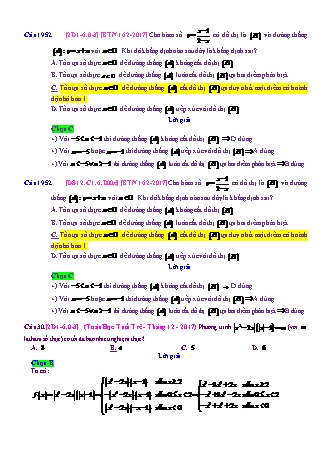 Câu 1952. [2D1-6.0-3] [BTN 162-2017] Cho hàm số y = x-1 / 2-x có đồ thị là (H) và đường
thẳng (d): y = x + m với m∈ℝ. Khi đó khẳng định nào sau đây là khẳng định sai?
A. Tồn tại số thực m∈ℝ để đường thẳng (d) không cắt đồ thị (H).
B. Tồn tại số thực để đường thẳng (d) luôn cắt đồ thị (H) tại hai điểm phân biệt.
C. Tồn tại số thực m∈ℝ để đường thẳng (d) cắt đồ thị (H) tại duy nhất một điểm có hoành
độ nhỏ hơn 1.
D. Tồn tại số thực m∈ℝ để đường thẳng (d) tiếp xúc với đồ thị (H).
Lời giải
Chọn C
+) Với -5<m<-1 thì đường thẳng (d) không cắt đồ thị (H) ⇒ D đúng.
+) Với m=-5 hoặc m=-1 thì đường thẳng (d) tiếp xúc với đồ thị (H) ⇒ A đúng.
+) Với m<-5∨m>-1 thì đường thẳng (d) luôn cắt đồ thị (H) tại hai điểm phân biệt ⇒ B đúng.
Câu 1952. [DS12.C1.6.D00.c] [BTN 162-2017] Cho hàm số y = x-1 / 2-x có đồ thị là (H) và đường
thẳng (d): y = x + m với m∈ℝ. Khi đó khẳng định nào sau đây là khẳng định sai?
A. Tồn tại số thực m∈ℝ để đường thẳng (d) không cắt đồ thị (H).
B. Tồn tại số thực m∈ℝ để đường thẳng (d) luôn cắt đồ thị (H) tại hai điểm phân biệt.
C. Tồn tại số thực m∈ℝ để đường thẳng (d) cắt đồ thị (H) tại duy nhất một điểm có hoành
độ nhỏ hơn 1.
D. Tồn tại số thực m∈ℝ để đường thẳng (d) tiếp xúc với đồ thị (H).
Lời giải
Chọn C
+) Với -5<m<-1 thì đường thẳng (d) không cắt đồ thị (H) → D đúng.
+) Với m=-5 hoặc m=-1 thì đường thẳng (d) tiếp xúc với đồ thị (H) ⇒ A đúng.
+) Với m<-5∨m>-1 thì đường thẳng (d) luôn cắt đồ thị (H) tại hai điểm phân biệt ⇒ B đúng.
Câu 30. [2D1-6.0-3] (Toán Học Tuổi Trẻ - Tháng 12 - 2017) Phương trình (với m
là tham số thực) có tối đa bao nhiêu nghiệm thực?
A. 3. B. 4. C. 5. D. 6.
Lời giải
Chọn B
Ta có: